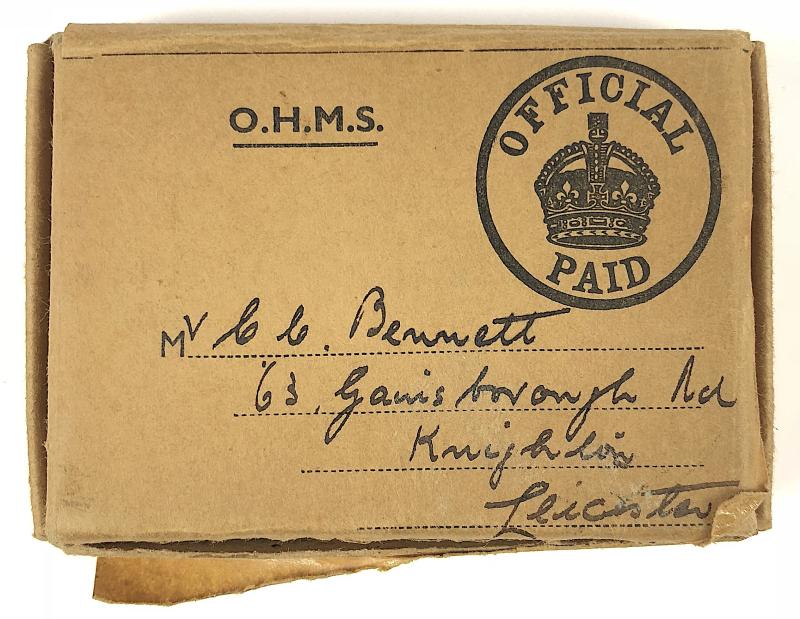 O.H.M.S.
OFFICIAL
PAID
Mr C C. Bennett
63, Gainsborough Rd
Knighton
Leicester